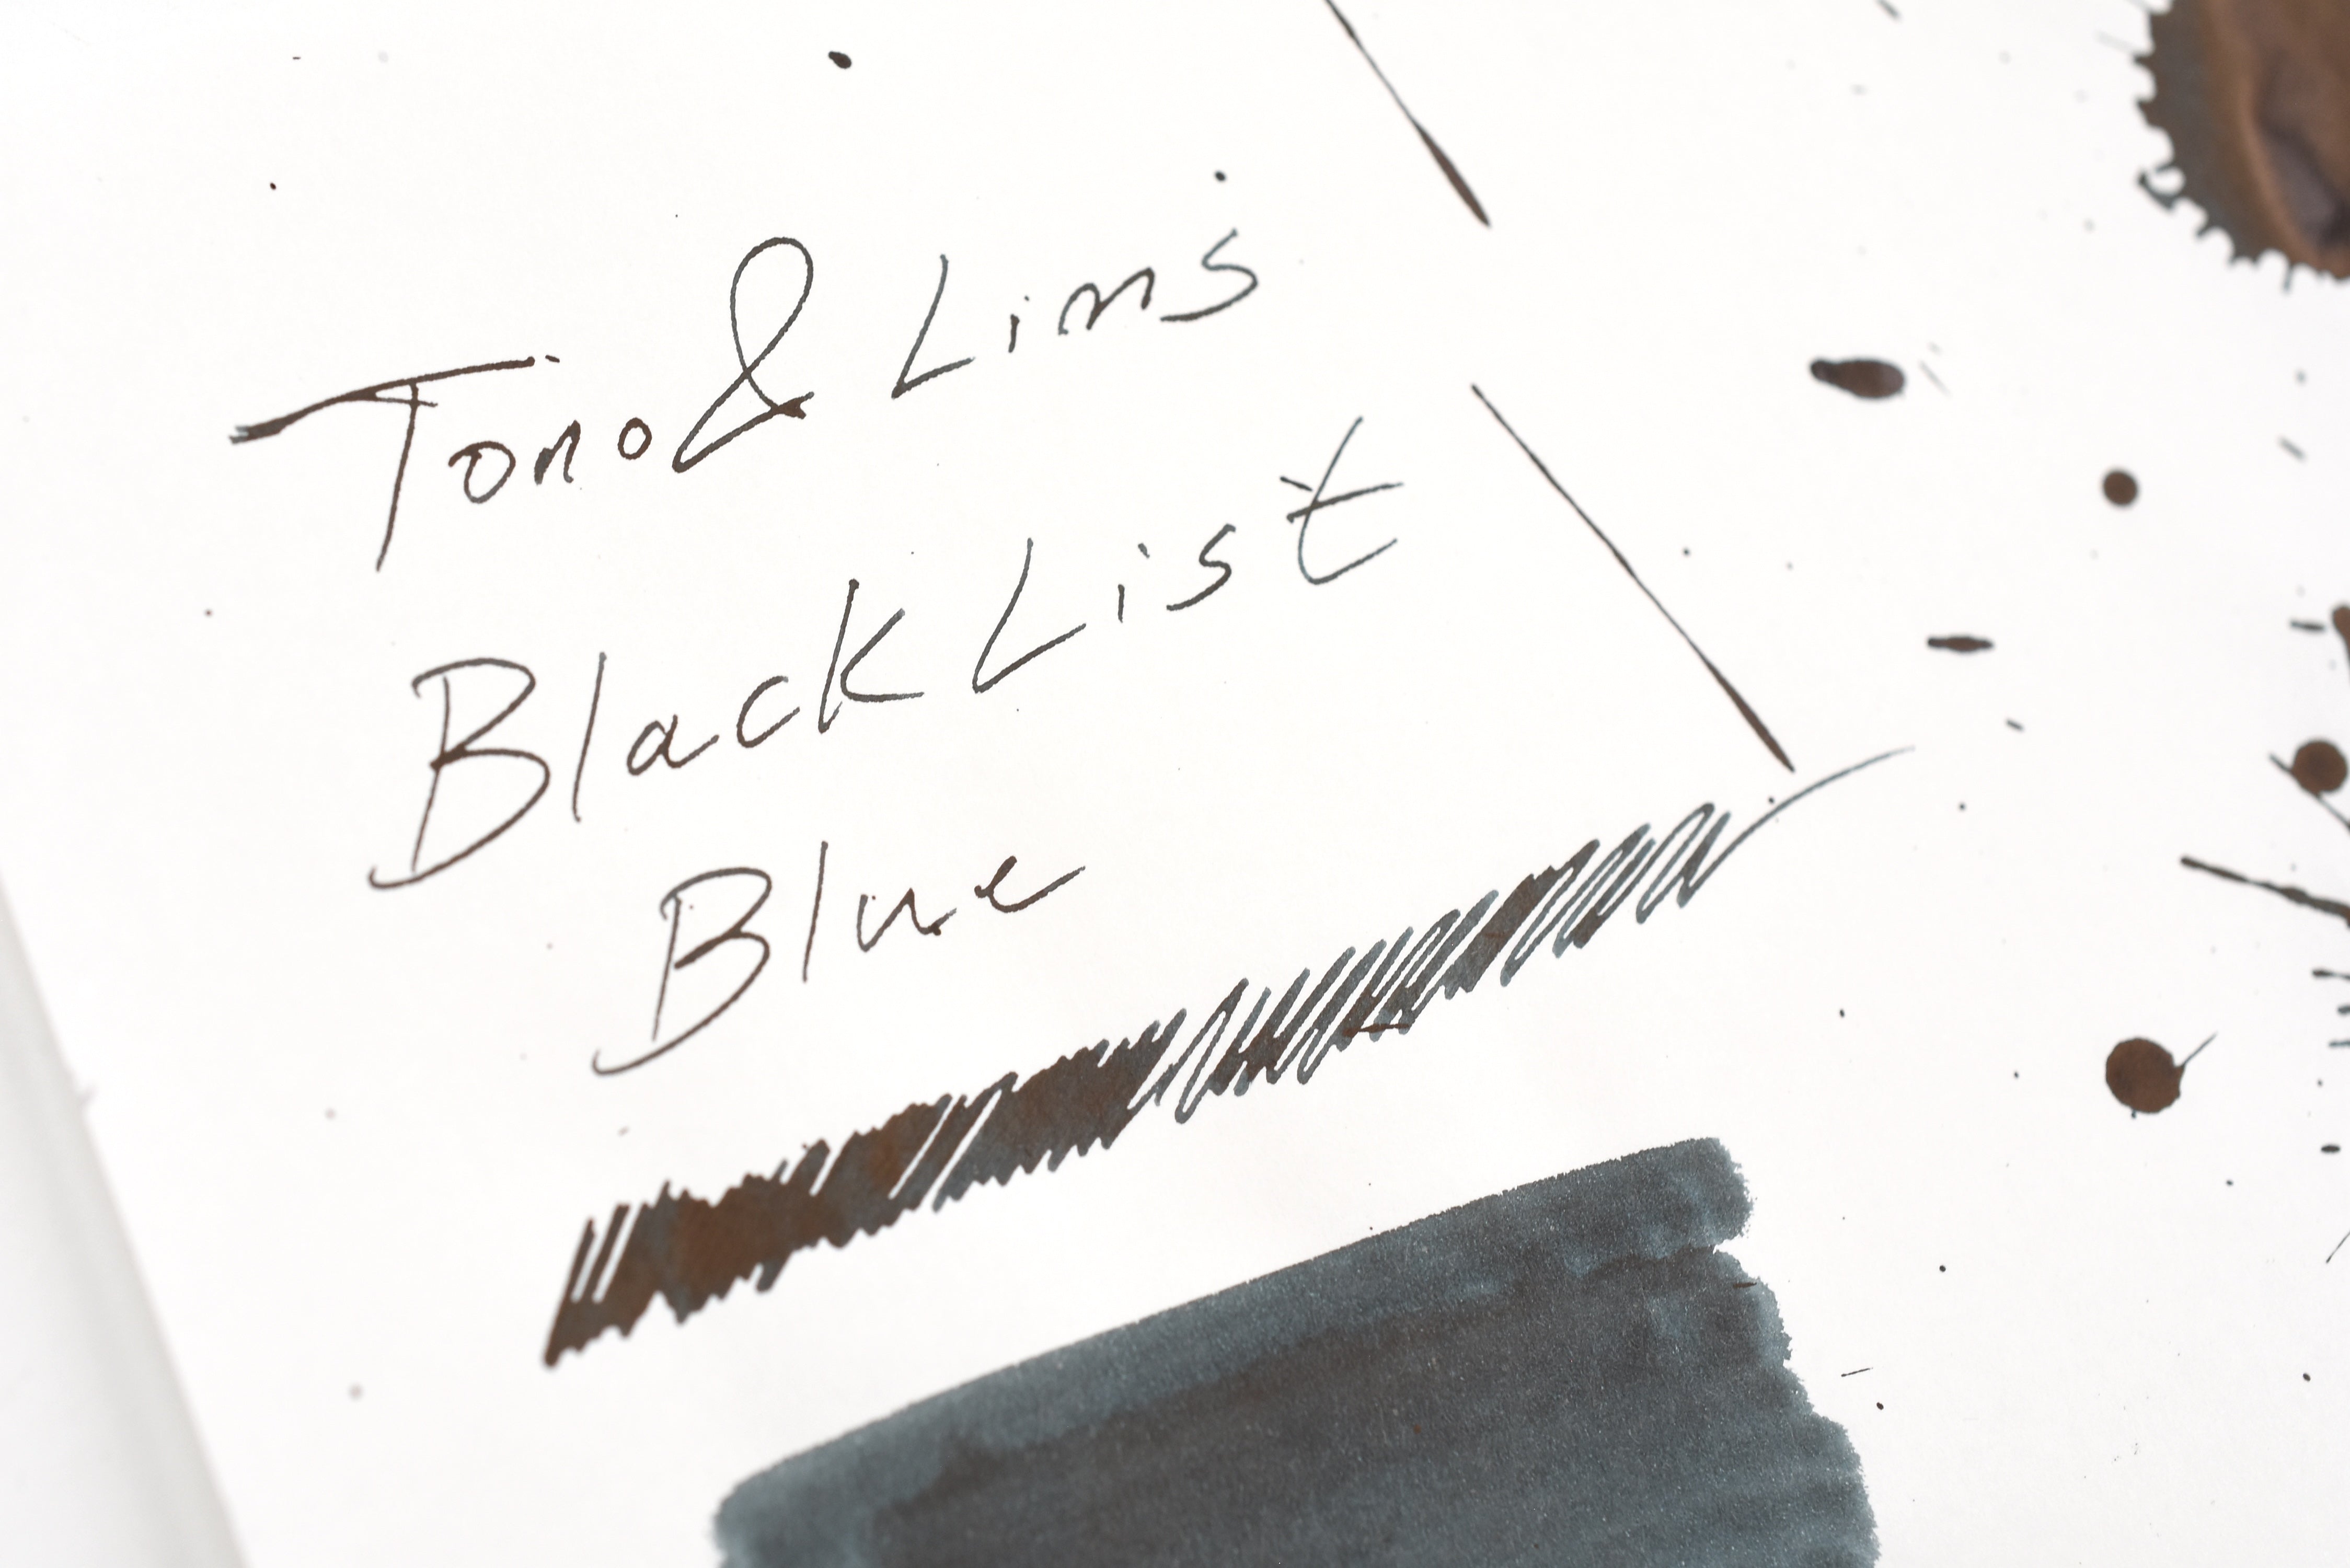 Tono & Lims
Black List
Blue